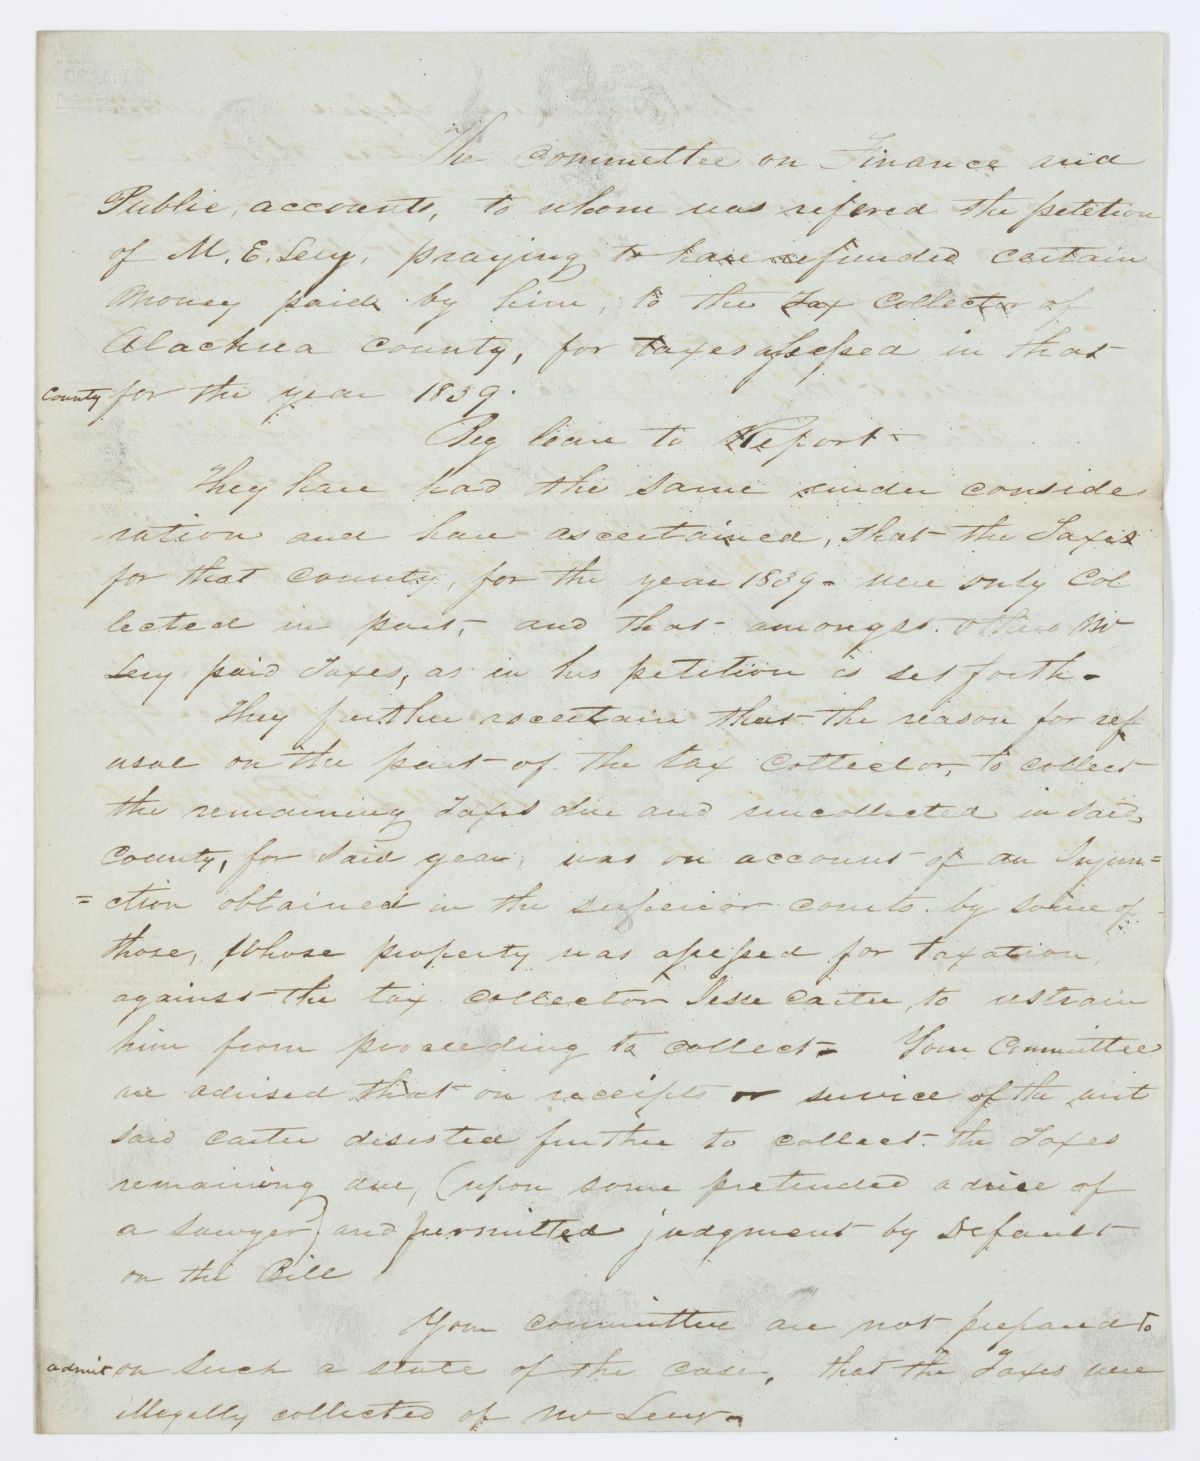 The Committee on Finance and
Public, accounts, to whom was refered the petetion
of M. E. Levy, praying to have refunded certain
Money paid by him, to the Tax Collector of
Alachua County, for taxes assessed in that
County for the year 1839.
Beg leave to Report
They have had the same under conside
ration and have ascertained, that the Taxes
for that County, for the year 1839. were only Col
lected in part, and that amongst others Mr
Levy paid Taxes, as in his petition is set forth.
They further ascertain that the reason for ref
usal on the part of the tax Collector, to collect
the remaining Taxes due and uncollected in said,
County, for said year, was on account of an Injun=
=ction obtained in the superior courts by some of
those, Whose property was assessed for taxation,
against the tax collector Jesse Carter, to restrain
him from proceeding to collect. Your Committee
are advised that on receipts or service of the writ
said Carter desisted further to collect the Taxes
remaining due, (upon some pretended advice of
a Lawyer) and permitted judgment by Default
on the Bill
Your committee are not prepared to
admit on such a state of the case, that the Taxes were
illegally collected of Mr Levy.